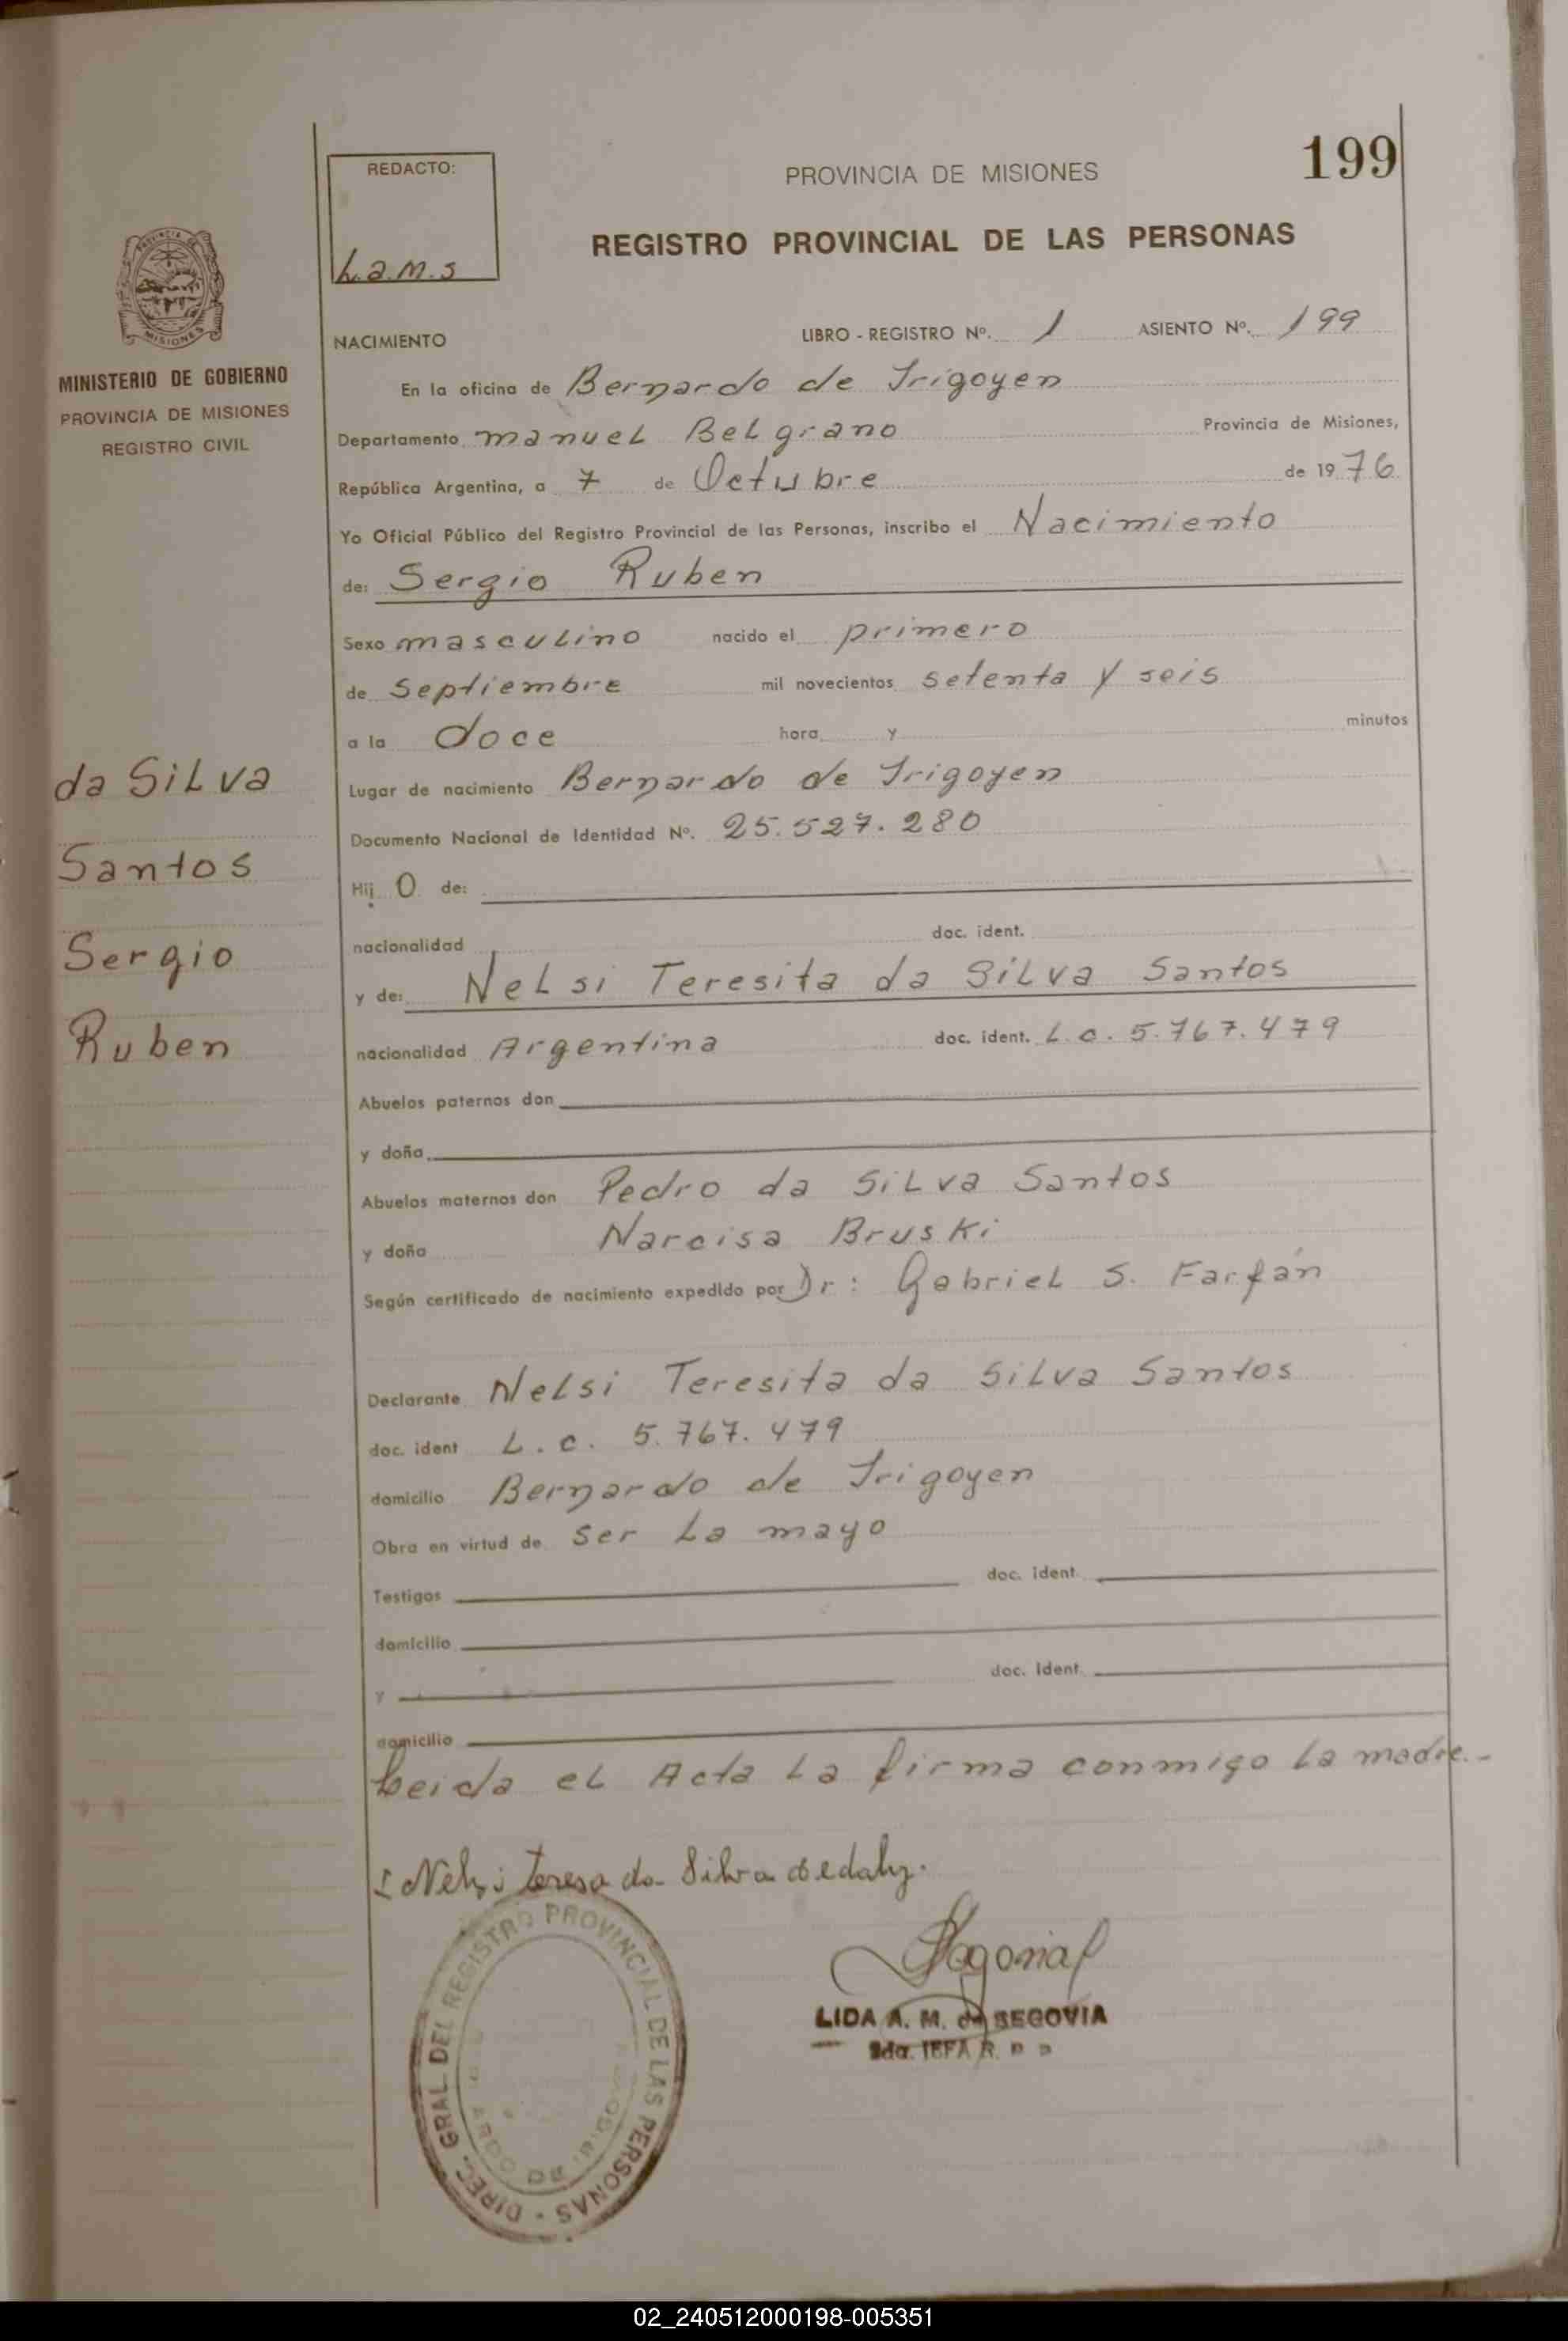 199
REDACTO:
L.a.M.s
PROVINCIA DE MISIONES
REGISTRO PROVINCIAL DE LAS PERSONAS
MINISTERIO DE GOBIERNO
PROVINCIA DE MISIONES
REGISTRO CIVIL
NACIMIENTO LIBRO - REGISTRO Nº. 1 ASIENTO Nº. 199
En la oficina de Bernardo de Irigoyen
Departamento manuel Belgrano Provincia de Misiones,
República Argentina, a 7 de Octubre de 1976
Yo Oficial Público del Registro Provincial de las Personas, inscribo el Nacimiento
de: Sergio Ruben
Sexo masculino nacido el primero
de Septiembre mil novecientos setenta y seis
a la doce hora y minutos
Lugar de nacimiento Bernardo de Irigoyen
Documento Nacional de Identidad Nº. 25.527.280
Hij O de:
nacionalidad doc. ident.
y de: Nelsi Teresita da Silva Santos
nacionalidad Argentina doc. ident. L.c. 5.767.479
Abuelos paternos don
y doña
Abuelos maternos don Pedro da Silva Santos
y doña Narcisa Bruski
Según certificado de nacimiento expedido por Dr: Gabriel S. Farfán
Declarante Nelsi Teresita da Silva Santos
doc. ident L.c. 5.767.479
domicilio Bernardo de Irigoyen
Obra en virtud de ser la mayo
Testigos doc. ident.
domicilio
y doc. ident.
domicilio
Leida el Acta la firma conmigo la madre.-
da Silva
Santos
Sergio
Ruben
Nelsi Teresa da Silva
LIDA A. M. de SEGOVIA
2da. JEFA R.
DIREC. GRAL. DEL REGISTRO PROVINCIAL DE LAS PERSONAS
02_240512000198-005351